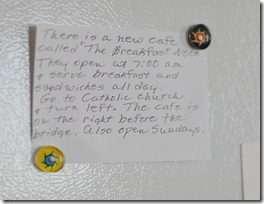 There is a new cafe
called "The Breakfast Nook
They open at 7:00 am
& serve breakfast and
sandwiches all day.
Go to Catholic church
& turn left. The cafe is
on the right before the
bridge. Also open Sundays.